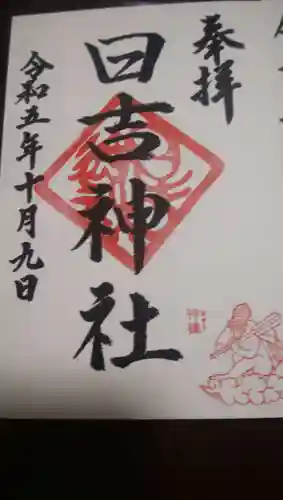 奉拝
日吉神社
令和五年十月九日